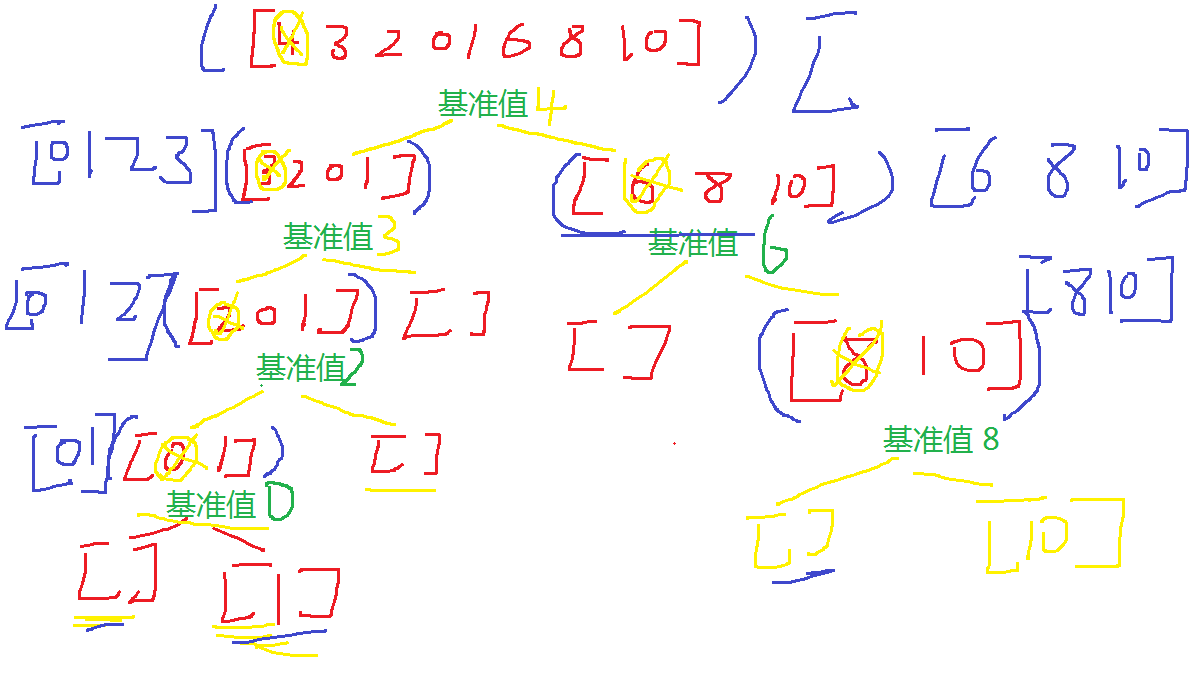 ( [ 4 3 2 0 1 6 8 10 ] ) [
基准值 4
[ 0 1 2 3 ] ( [ 3 2 0 1 ] ) ( [ 6 8 10 ] ) [ 6 8 10 ]
基准值 3 基准值 6
[ 8 10 ]
[ 0 1 2 ] ( [ 2 0 1 ] ) [ ] [ ] ( [ 8 10 ] )
基准值 2
[ 0 1 ] ( [ 0 1 ] ) [ ] 基准值 8
基准值 0
[ ] [ 1 ] [ ] [ 10 ]